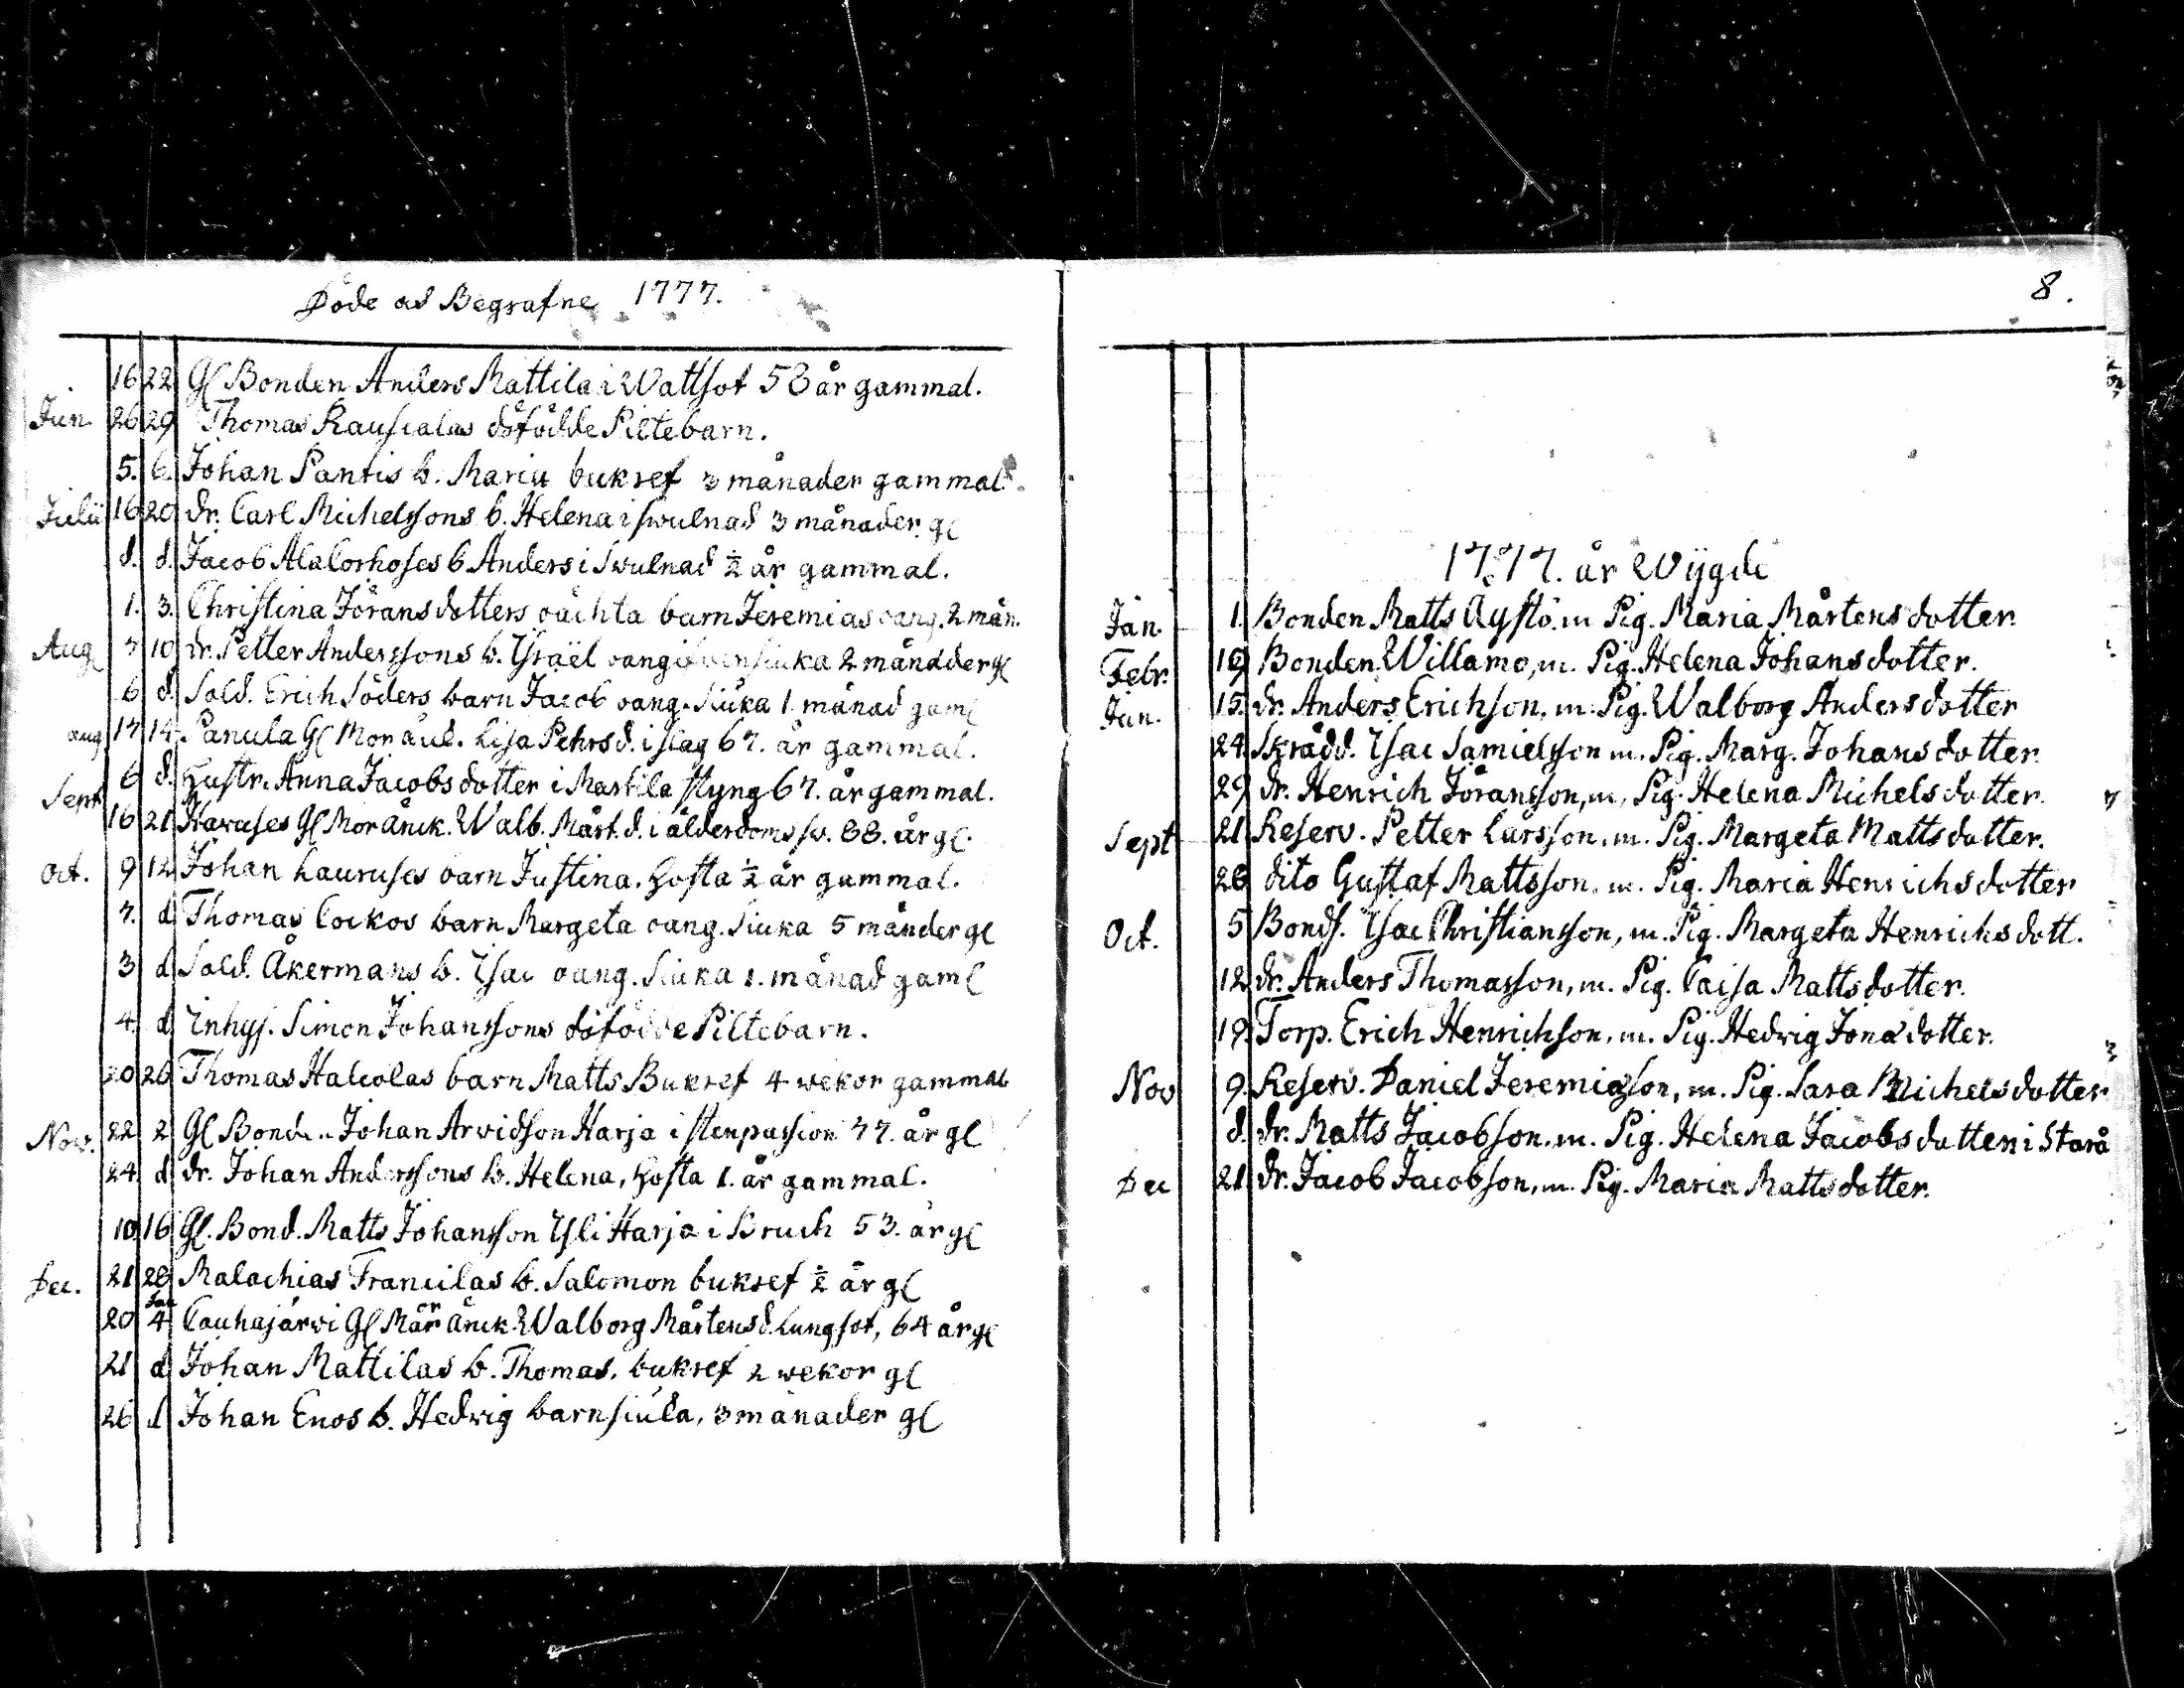 Döde och Begrafne 1777.
16 22 Gl Bonden Anders Mattila i Wattsot 53 år gammal.
Jun. 26 29 Thomas Rauscalas döfödde Piltebarn.
5. 6. Johan Pantis b. Maria bukref 3 månader gammal.
Julii 16 20 dr. Carl Michelssons b. Helena i swulnad 3 månader gl
d. d. Jacob Alalorhoses b Anders i Swulnad ½ år gammal.
1. 3. Christina Jöransdotters oächta barn Jeremias oang. 2 mån.
Aug 7 10 dr. Petter Anderssons b. Israël oangifwen siuka 2 månader gl
6 d. Sold. Erich Söders barn Jacob oang. Siuka 1 månad gaml
aug 17 14. Panula Gl Mor Lisa Pehrsd. i slag 67. år gammal.
Sept 6 d. Hustr. Anna Jacobsdotter i Martila styng 67. år gammal.
16 21 Gl Mor änck. Walb. Mårt.d. i ålderdoms sv. 88. år gl.
Oct. 9 12 Johan Lauruses barn Justina. Hosta ½ år gammal.
7. d Thomas Cockos barn Margeta oang. Siuka 5 månder gl
3 d Sold. Åkermans b. Isac oang. Siuka 1. månad gaml
4. d Inhys. Simon Johanssons döfödde Piltebarn.
20 26 Thomas Halcolas barn Matts Bukref 4 wekor gammal
Nov. 22 2 Gl Bonden Johan Arvidson Harja i stenpassion 77. år gl
24 d dr. Johan Anderssons b. Helena, Hosta 1. år gammal.
10 16 Gl. Bond. Matts Johansson Yli Harja i Bruch 53. år gl
Dec. 21 28 Malachias Francilas b. Salomon bukref ½ år gl
20 Jan 4 Cauhajärwi Gl Mor änck. Walborg Mårtensd. Lungsot, 64 år gl
21 d Johan Mattilas b. Thomas. bukref 2 wekor gl
26 d Johan Enos b. Hedwig barnsiuka, 3 månader gl
8.
1777. år Wijgde
Jan. 1. Bonden Matts Aystö. m Pig. Maria Mårtensdotter.
Febr. 19 Bonden Willamo, m. Pig. Helena Johansdotter.
Jun. 15. dr. Anders Erichson, m. Pig. Walborg Andersdotter
24 Skrädd. Isac Samielsson m. Pig. Marg. Johansdotter.
29 dr. Henrich Jöransson, m, Pig. Helena Michelsdotter.
Sept 21 Reserv. Petter Larsson, m. Pig. Margeta Mattsdotter.
28 dito Gustaf Mattsson, m. Pig. Maria Henrichsdotter
Oct. 5 Bonds. Isac Christiansson, m. Pig. Margeta Henrichsdott.
12 dr. Anders Thomasson, m. Pig. Caisa Mattsdotter.
19 Torp. Erich Henrichson, m. Pig. Hedwig Jonædotter.
Nov 9. Reserv. Daniel Jeremiæson, m. Pig. Sara Michelsdotter
d. dr. Matts Jacobson, m. Pig. Helena Jacobsdotter i Starå
Dec 21 dr. Jacob Jacobson, m. Pig. Maria Mattsdotter.